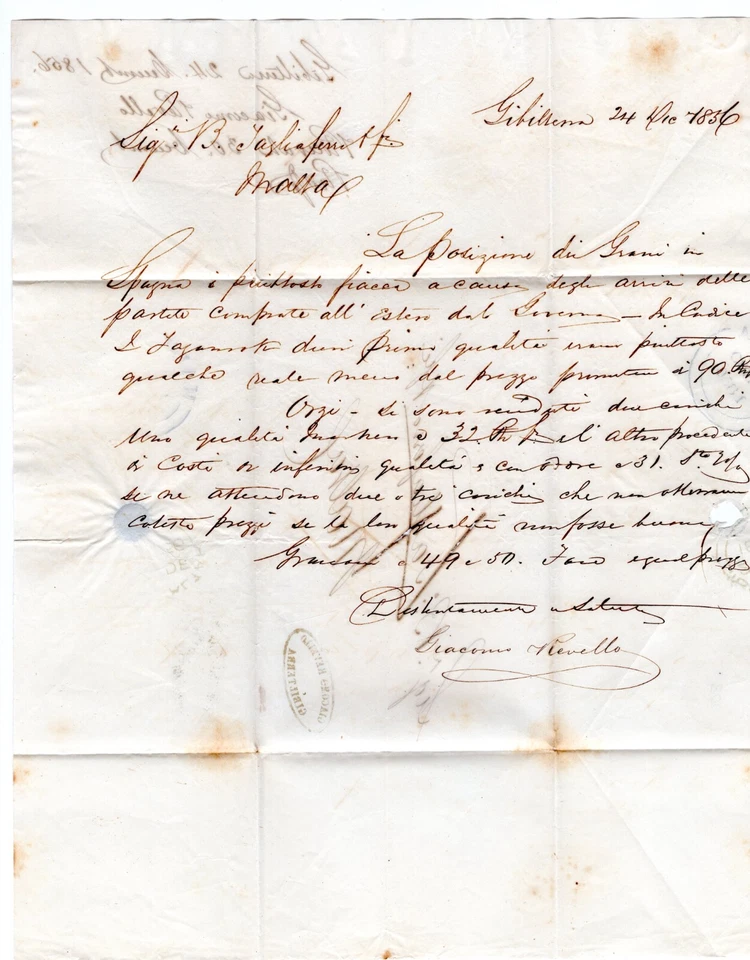 Gibilterra 24 Dic 1856
Sigri B. Tagliaferro & fi
Malta
La posizione dei Grani in
Spagna è piuttosto fiacca a causa degli arrivi delle
partite comprate all' Estero dal Governo — In Cadice
I Taganrok duri prima qualità erano piuttosto
qualche reale meno dal prezzo primitivo di 90.
Orzi - si sono venduti due carichi
Uno qualità a 32 e l' altro procedente
di Costì di inferior qualità a 31.
se ne attendono due o tre carichi che non otterranno
cotesti prezzi se la loro qualità non fosse buona
Granoni a 49 a 50. Fave egual prezzo
Distintamente vi saluto
Giacomo Revello
GIACOMO REVELLO
GIBILTERRA
Gibilterra 24 1856.
Giacomo Revello